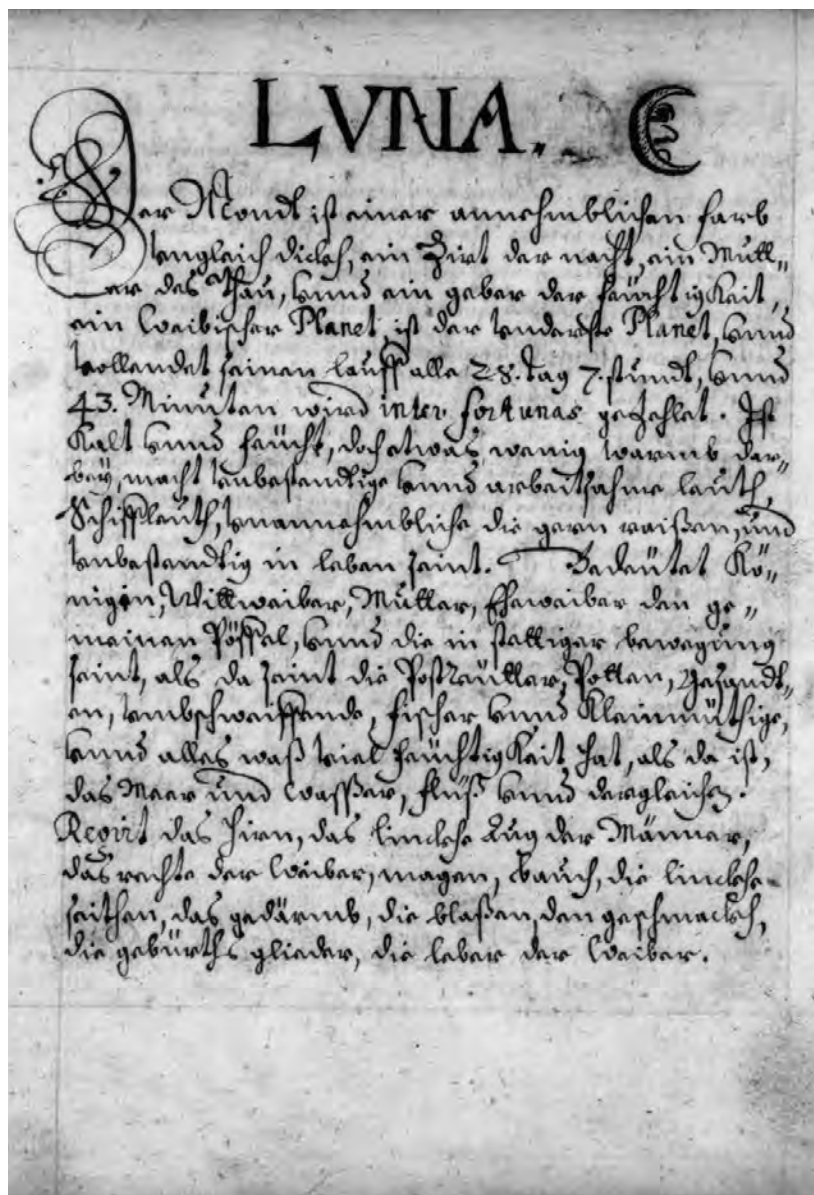 LVNA.
Der Mondt ist einer annehmblichen farb
vngleich dickh, ein Zirt der nacht, ein Mutt„
er des Thau, vnnd ein geber der feüchtigkeit,
ein Weibischer Planet ist der vnderste Planet, vnnd
vollendet seinen lauff alle 28. tag 7. stundt, vnnd
43. Minuten wird inter fortunas gezehlet. Ist
Kalt vnnd feücht, doch etwas wenig warmb dar„
bey, macht vnbestendige vnnd arbeitsahme leuth,
Schiffleuth, vnannehmbliche die gern raißen, und
vnbestendtig in leben seint. Bedeütet Kö„
nigin, Wittweiber, Mütter, Eheweiber den ge„
meinen Pöffel, vnnd die in stettiger bewegung
seint, als da seint die Postreütter, Potten, Gesandt„
en, vmbschweiffende, fischer vnnd Kleinmüthige,
vnnd alles waß viel feüchtigkeit hat, als da ist,
das Meer und Wasser, flüß vnnd dergleichen.
Regirt das hirn, das linckhe Aug der Männer,
das rechte der Weiber, magen, bauch, die linckhe
seithen, das gedärmb, die blaßen, den geschmackh,
die gebürths glieder, die leber der Weiber.